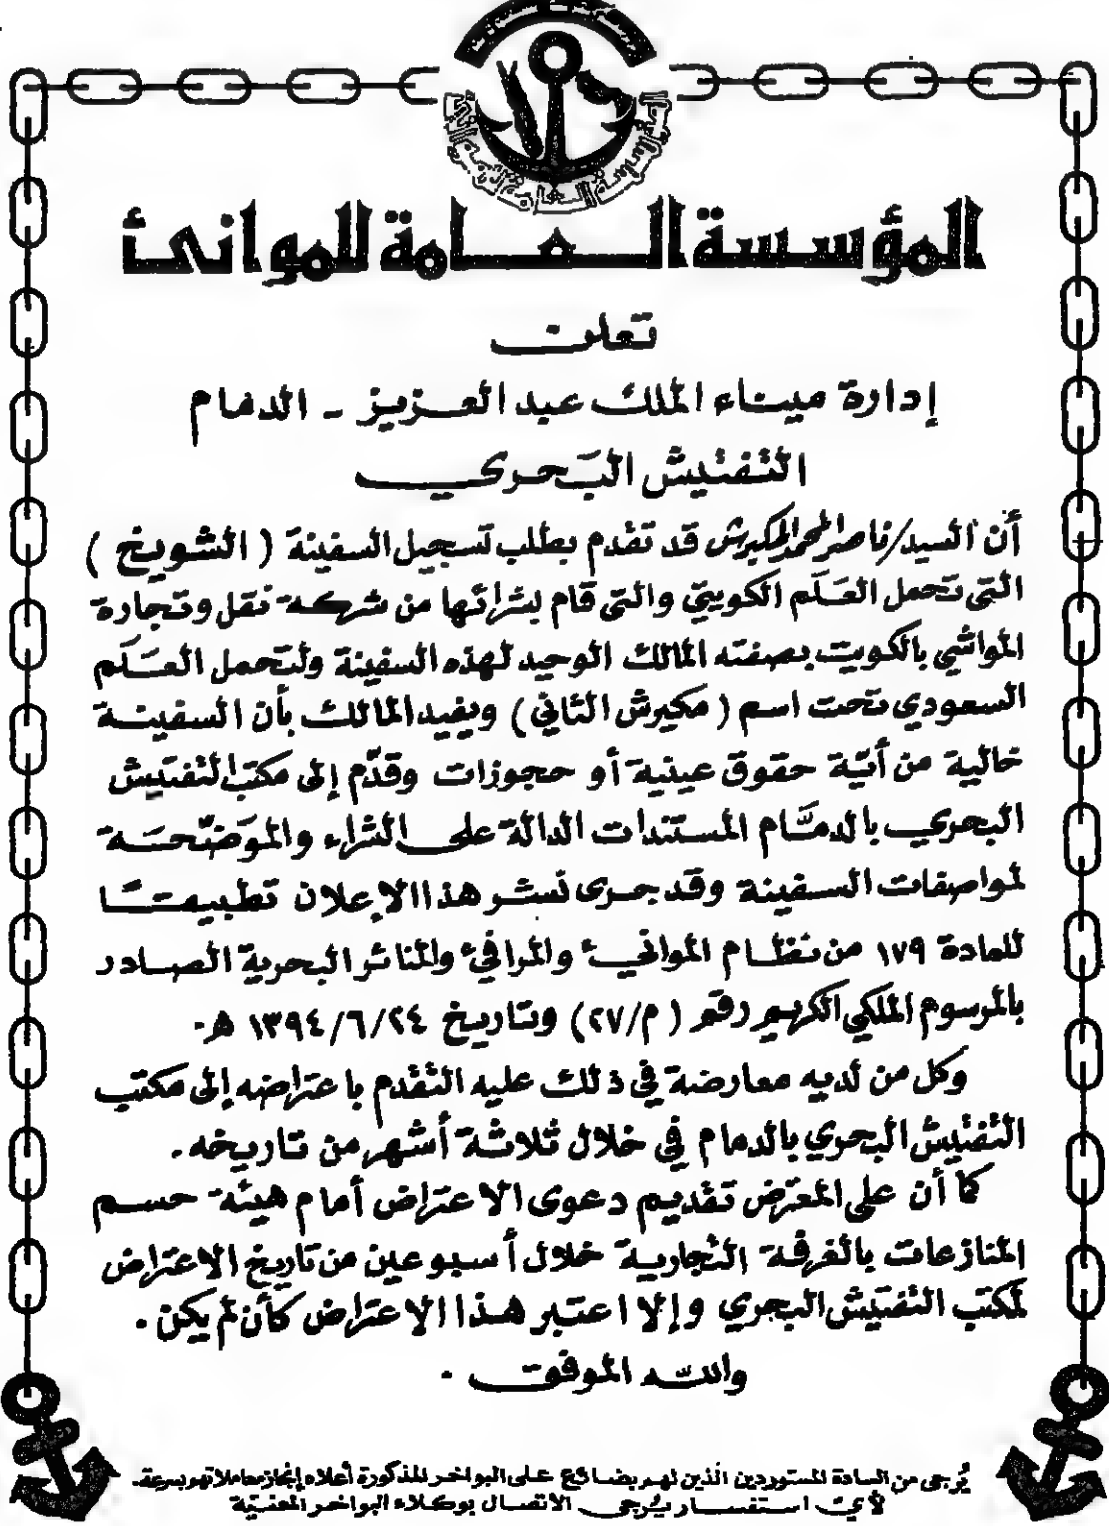 المؤسسة العامة للموانئ
تعلن
إدارة ميناء الملك عبد العزيز - الدمام
التفتيش البحري
أن السيد/ناصر المحمد المكيرش قد تقدم بطلب تسجيل السفينة ( الشويخ )
التي تحمل العَلَم الكويتي والتي قام بشرائها من شركة نقل وتجارة
المواشي بالكويت بصفته المالك الوحيد لهذه السفينة ولتحمل العَلَم
السعودي تحت اسم ( مكيرش الثاني ) ويفيد المالك بأن السفينة
خالية من أيّة حقوق عينية أو حجوزات وقدّم إلى مكتب التفتيش
البحري بالدمَّام المستندات الدالة على الشراء والموَضّحَة
لمواصفات السفينة وقد جرى نشر هذا الإعلان تطبيقًا
للمادة ١٧٩ من نظام الموانئ والمرافئ والمنائر البحرية الصادر
بالمرسوم الملكي الكريم رقم ( م/٢٧) وتاريخ ١٣٩٤/٦/٢٤ هـ.
وكل من لديه معارضة في ذلك عليه التقدم باعتراضه إلى مكتب
التفتيش البحري بالدمام في خلال ثلاثة أشهر من تاريخه .
كما أن على المعترض تقديم دعوى الاعتراض أمام هيئة حسم
المنازعات بالغرفة التجارية خلال أسبوعين من تاريخ الاعتراض
لمكتب التفتيش البحري وإلا اعتبر هذا الاعتراض كأن لم يكن .
والله الموفق .
يُرجى من السادة المستوردين الذين لهم بضائع على البواخر المذكورة أعلاه إنجاز معاملاتهم بسرعة.
لأيّ استفسار يُرجى الاتصال بوكلاء البواخر المعنيّة